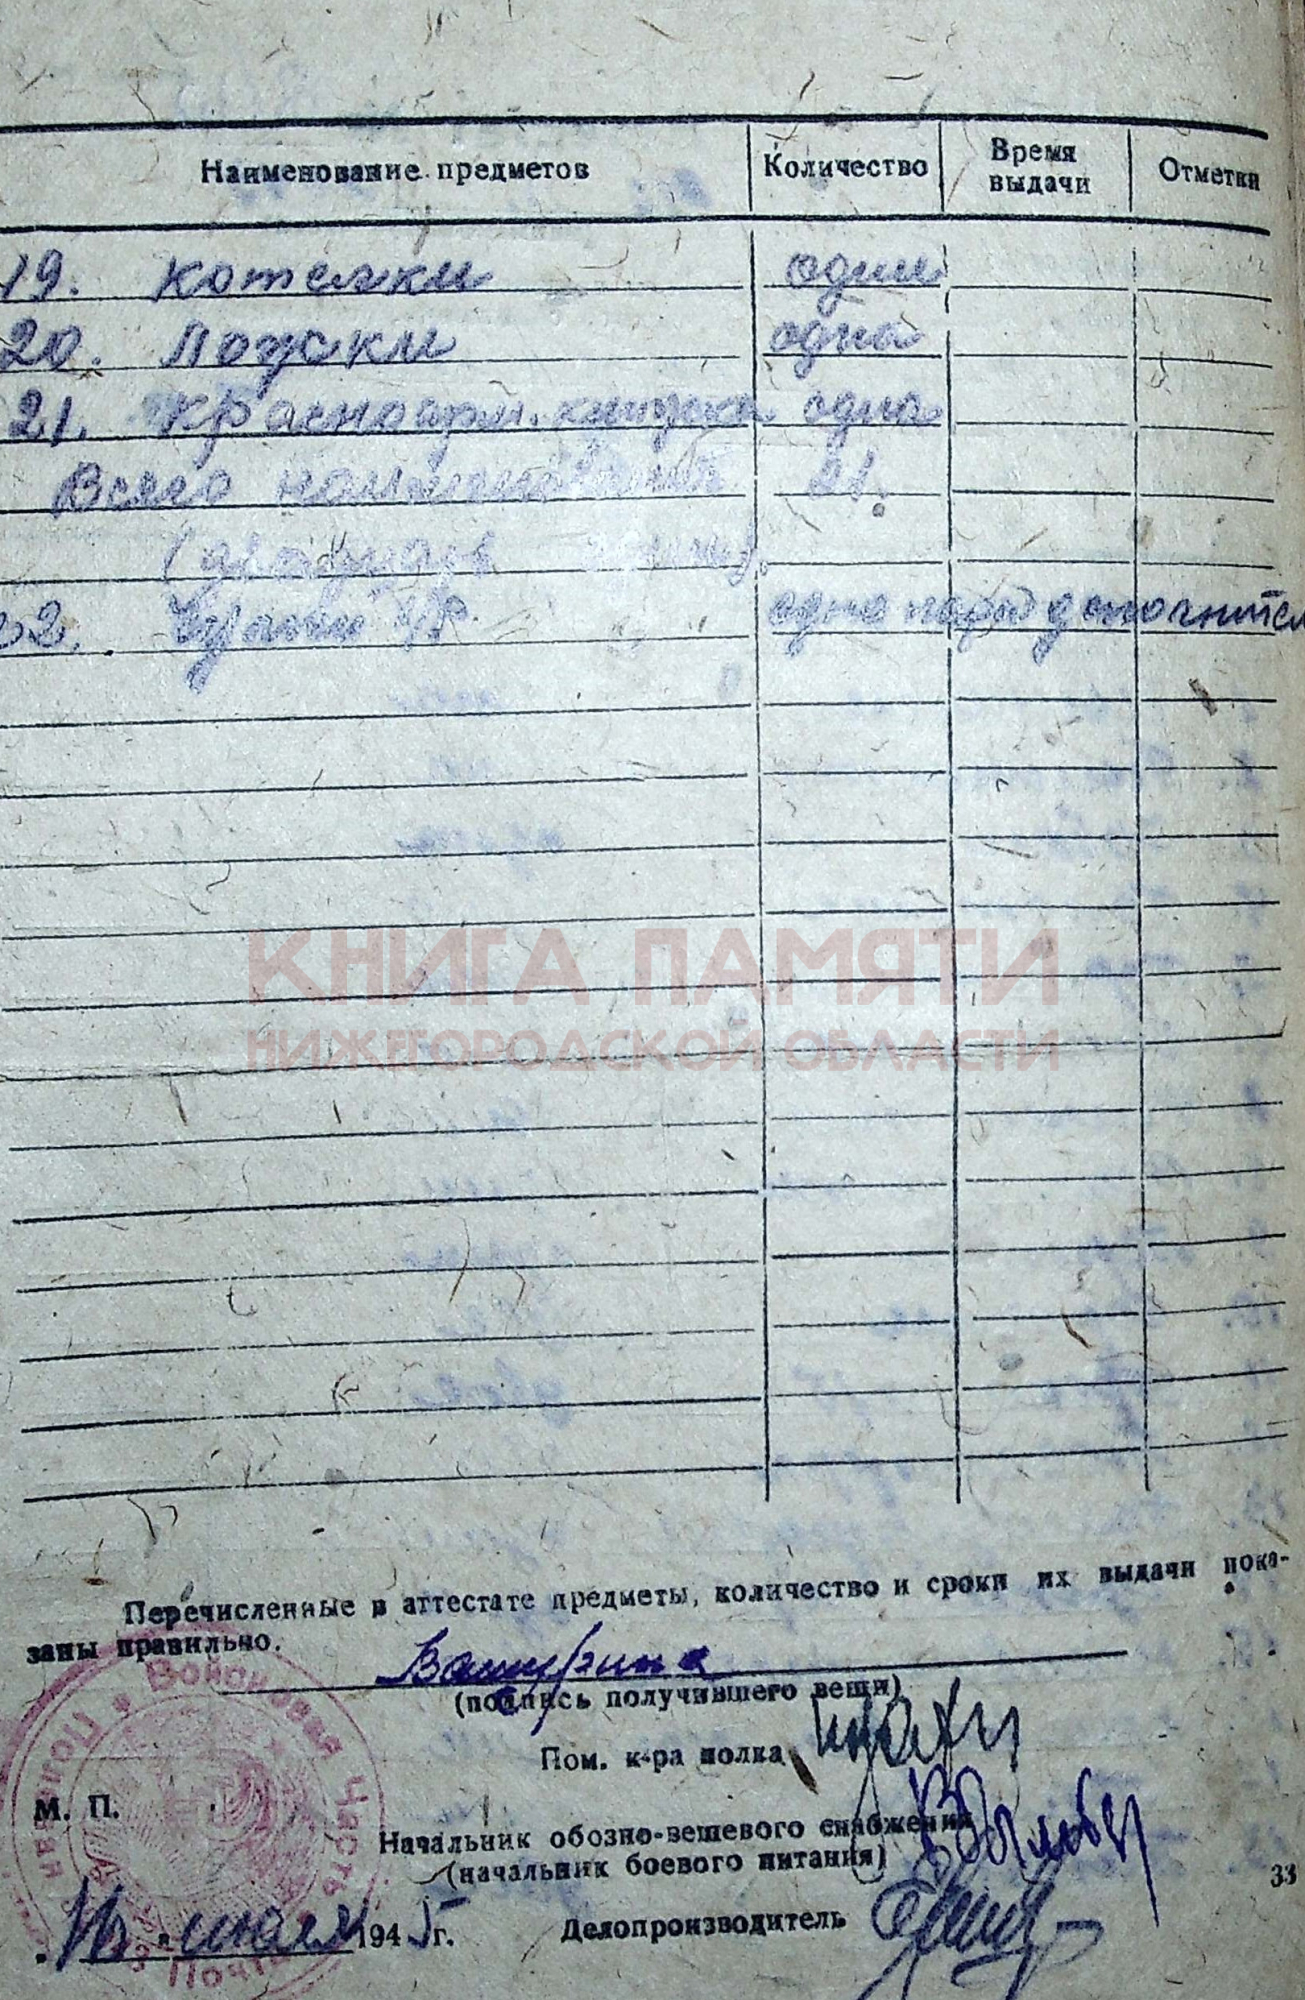 Наименование предметов Количество Время выдачи Отметки
19. котелки один
20. Ложки одна
21. Красноарм. книжка одна
Всего наименований 21.
(двадцать один).
22. одна пара дополнител
КНИГА ПАМЯТИ
НИЖЕГОРОДСКОЙ ОБЛАСТИ
Перечисленные в аттестате предметы, количество и сроки их выдачи пока-
заны правильно.
(подпись получившего вещи)
Пом. к-ра полка
М. П.
Начальник обозно-вещевого снабжения
(начальник боевого питания)
33
Делопроизводитель
"16" июля 1945 г.
Войсковая Часть Полевая Почта